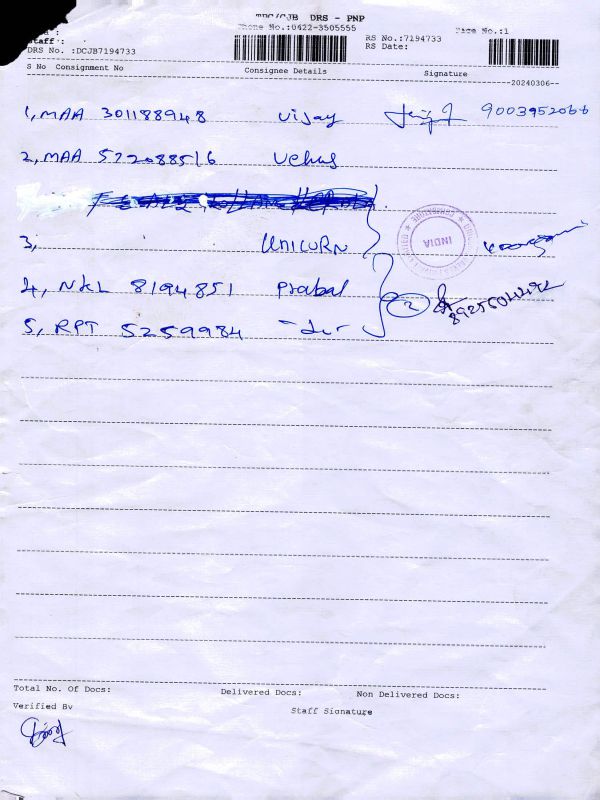 TPC/CJB DRS - PNP
Phone No.:0422-3505555
RS No.:7194733
Page No.:1
Staff :
RS Date:
DRS No. :DCJB7194733
S No Consignment No Consignee Details Signature
20240306
1, MAA 301188948 Vijay 9003952066
2, MAA 572088516
3, UNICORN
INDIA
4, NKL 8194851 Prabal 2
5, RPT 5259984 -do-
Total No. Of Docs: Delivered Docs: Non Delivered Docs:
Verified By
Staff Signature